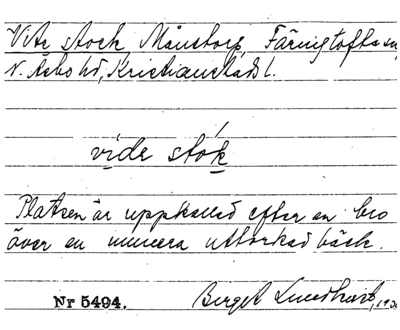 Vite stock Månstorp, Färingtofta sn,
N. Åsbo hd, Kristianstads l.
vide stók
Platsen är uppkallad efter en bro
över en numera uttorkad bäck.
Nr 5494. Birgit Lundkvist, 193